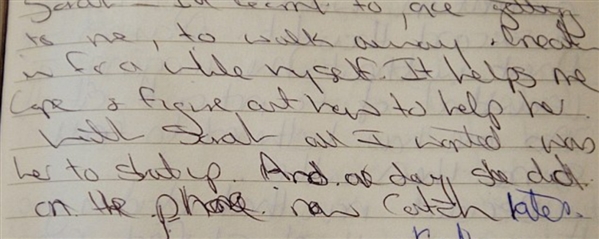 Sarah - I'd learnt to, ace
to me, to walk away. Break
in for a while myself. It helps me
Cope & figure out how to help her.
With Sarah all I wanted was
her to shut up. And one day she did.
on the phone. now Catch later.